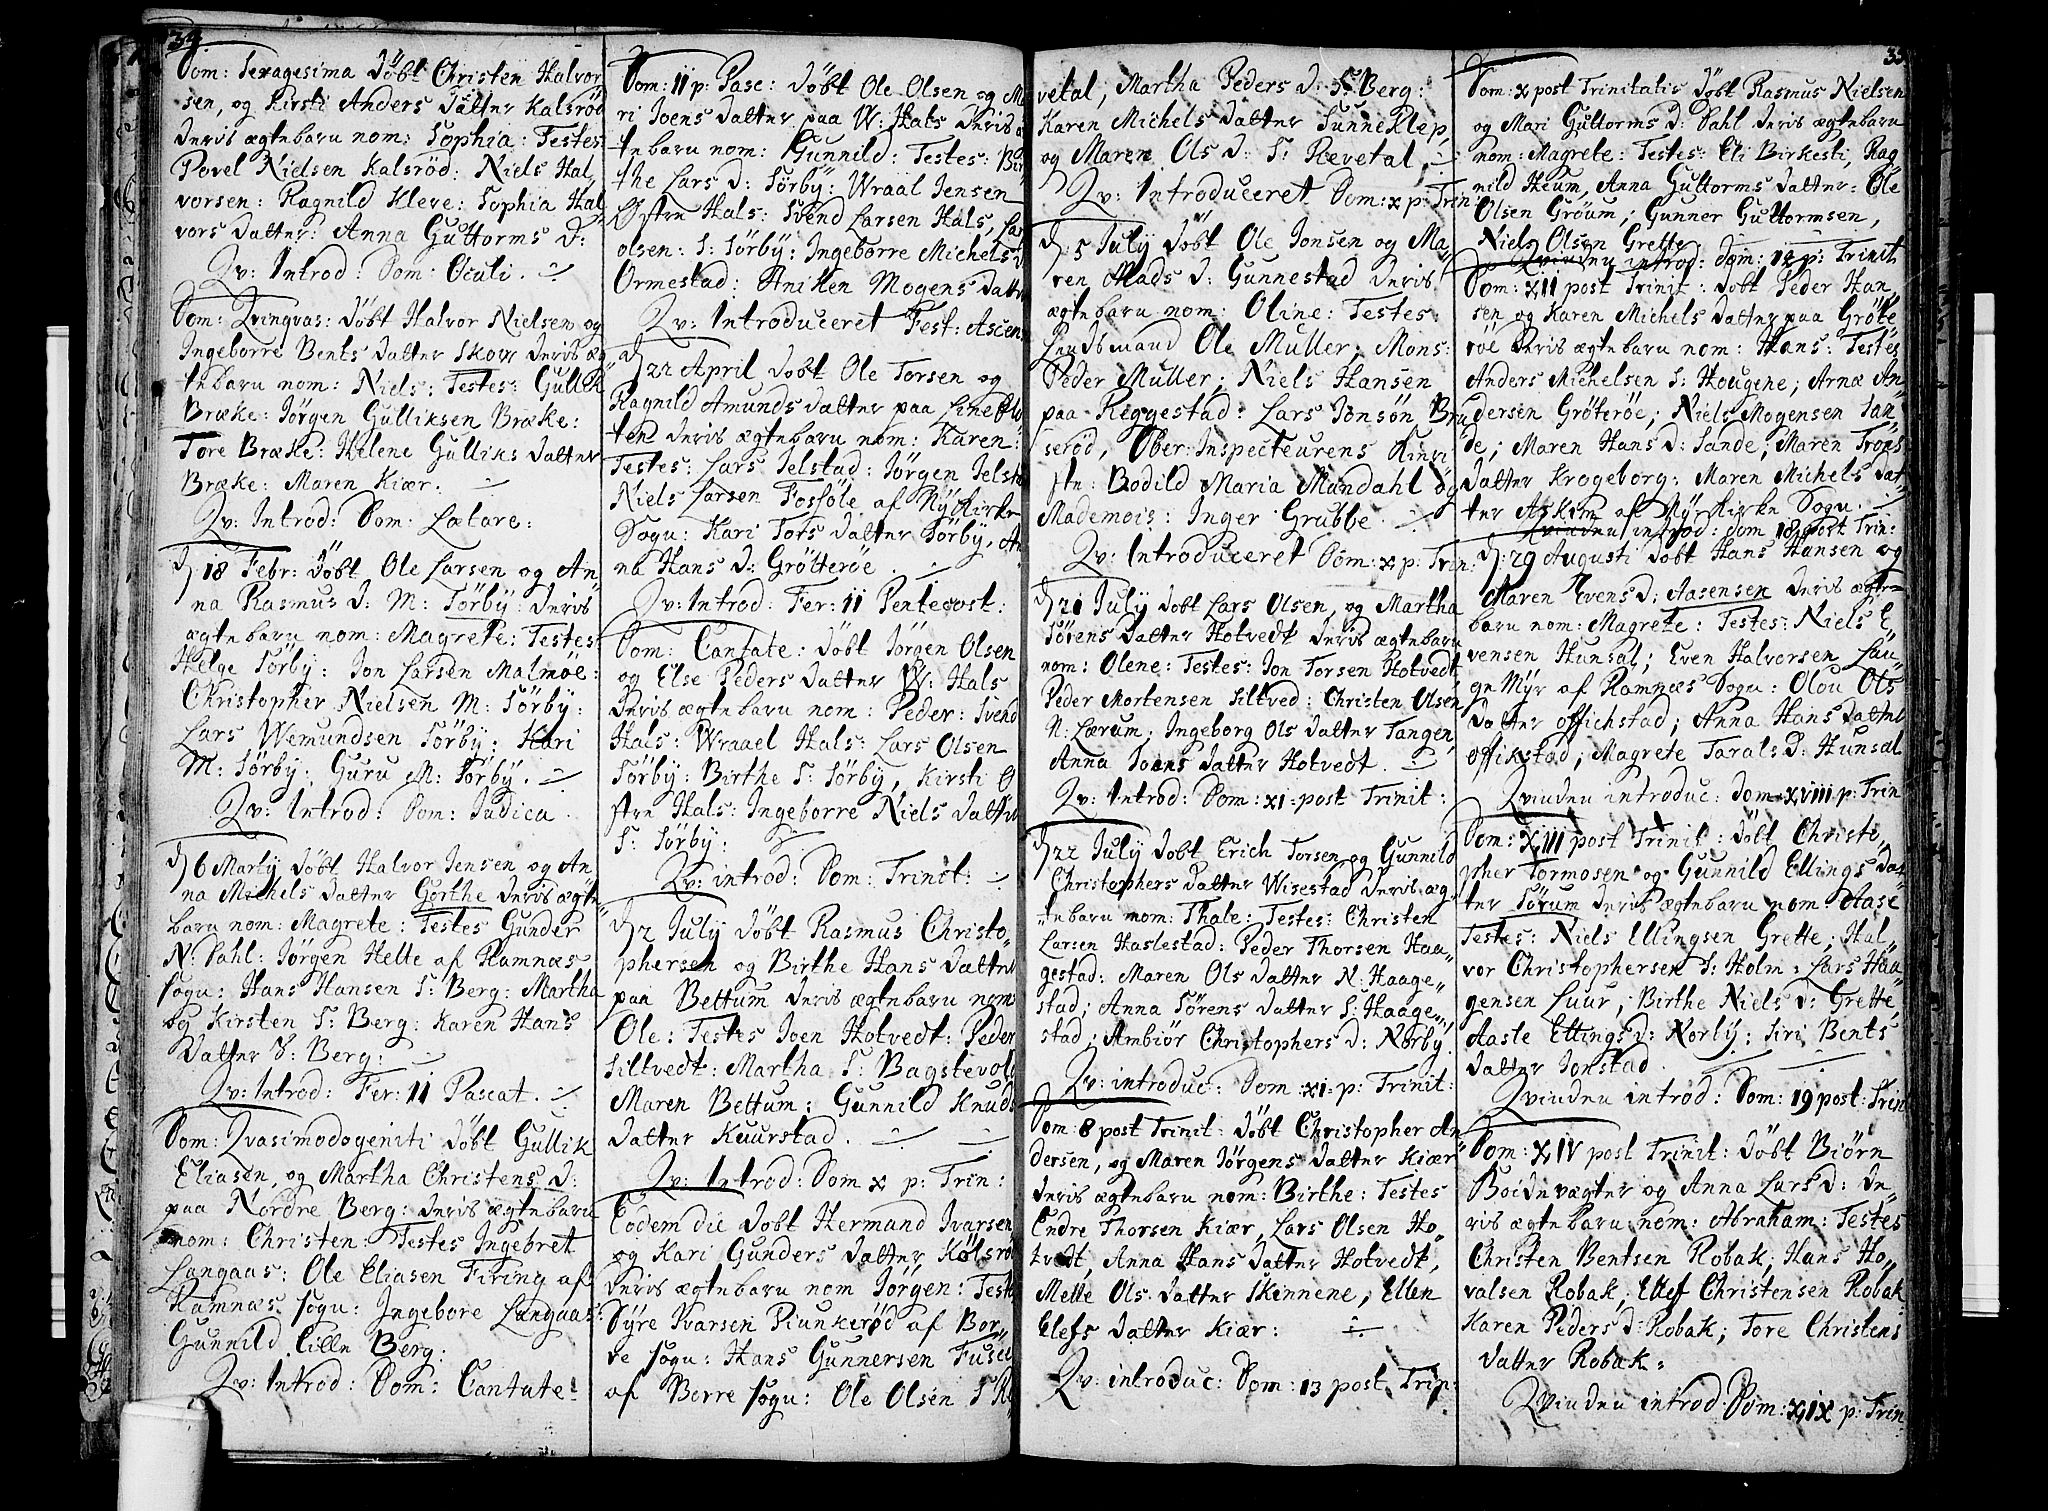 34.
Dom: Sexagesima døbt Christen Halvor
sen, og Kirsti Anders datter Kalsrød
deris ægtebarn nom: Sophia: Testes
Povel Nielsen Kalsrød: Niels Hal,
vorsen: Ragnild Kleve: Sophia Hal
vors datter: Anna Guttorms D:
Qv: Introd: Dom: Oculi.
Dom: Qvinqvas: døbt Halvor Nielsen og
Ingeborre Bents datter Skow deris æg
tebarn nom: Niels: Testes: Gullik
Bræke: Jørgen Gulliksen Bræke:
Tore Bræke: Helene Gulliks datter
Bræke: Maren Kiær.
Qv: Introd: Dom: Lætare:
D. 18 Febr: døbt Ole Larsen og An
na Rasmus D: M: Sørby: deris
ægtebarn nom: Magrete: Testes:
Helge Sørby: Jon Larsen Malmøe:
Christopher Nielsen M: Sørby:
Lars Wemundsen Sørby: Kari
M: Sørby: Guru M: Sørby.
Qv: Introd: Dom: Judica.
D. 6 Martij døbt Halvor Jensen og An
na Michels datter Gorthe deris ægte
barn nom: Magrete: Testes Gunder
N: Dahl: Jørgen Helte af Ramnæs
sogn: Hans Hansen S: Berg: Martha
og Kirsten S: Berg: Karen Hans
datter S: Berg:
Qv: Introd: Fer: 11 Pascat.
Dom: Qvasimodogeniti døbt Gullik
Eliasen, og Martha Christens D:
paa Nordre Berg: deris ægtebarn
nom: Christen: Testes Ingebret
Langaas: Ole Eliasen Firing af
Ramnæs sogn: Ingebore Langaas:
Gunnild Lille Berg:
Qv: Introd: Dom: Cantate:
Dom: 11 p: Pasc: døbt Ole Olsen og Ma
ri Joens datter paa W: Hals deris æg
tebarn nom: Gunnild: Testes: Bir
the Lars D: Sørby: Wraal Jensen
Østre Hals: Svend Larsen Hals, Lars
olsen: S: Sørby: Ingeborre Michels d
Ormestad: Aniken Mogens datter
Qv: Introduceret Fest: Ascens
D. 22 April døbt Ole Torsen og
Ragnild Amunds datter paa Lineklø
ten deris ægtebarn nom: Karen:
Testes: Lars Jelstad: Jørgen Jelstad
Niels Larsen Fossøle af Nykirke
Sogn: Kari Tors datter Sørby, An
na Hans D: Grøtterøe.
Qv: Introd: Fer: 11 Pentecost:
Dom: Cantate: døbt Jørgen Olsen
og Else Peders datter W: Hals
Deris ægtebarn nom: Peder: Svend
Hals: Wraael Hals: Lars Olsen
Sørby: Birthe S: Sørby, Kirsti Ø
stre Hals: Ingeborre Niels datter
S: Sørby:
Qv: introd: Dom: Trinit:
D. 2 July døbt Rasmus Christo,
phersen og Birthe Hans datter
paa Bettum deris ægtebarn nom
Ole: Testes Joen Hotvedt: Peder
Siltvedt: Martha S: Bagstevold
Maren Bettum: Gunnild Knuds
datter Kuurstad.
Qv: Introd: Dom x p: Trin:
Eodem die døbt Hermand Ivarsen
og Kari Gunders datter Kølsrød
deris ægtebarn nom Jørgen: Testes
Syre Ivarsen Piunkerød af Bor,
re sogn: Hans Gunnersen Fuse
af Borre sogn: Ole Olsen S Ræ
vetal, Martha Peders D: S: Berg:
Karen Michels datter Sunneklep,
og Maren Ols D: S: Rævetal.
Qv: Introduceret Dom: x p: Trin:
D. 5 July døbt Ole Jonsen og Ma
ren Mads D: Gunnestad deris
ægtebarn nom: Oline: Testes:
Lendsmand Ole Muller; Mons:
Peder Muller; Niels Hansen
paa Reggestad: Lars Jonsøn Bru
serød, Ober:Inspecteurens Kiæri
ste: Bodild Maria Mundahl og
Mademois: Inger Grubbe.
Qv: Introduceret Dom: x p: Trin:
D. 21 July døbt Lars Olsen, og Martha
Sørens datter Hotvedt deris ægtebarn
nom: Olene: Testes: Jon Torsen Hotvedt
Peder Mortensen Siltved: Christen Olsen
N: Lærum; Ingeborg Ols datter Tangen,
Anna Joens datter Hotvedt.
Qv: Introd: Dom: xi: post Trinit:
D. 22 July døbt Erich Torsen og Gunnild
Christophers datter Wisestad deris æg
tebarn nom: Thale: Testes: Christen
Larsen Haslestad: Peder Thorsen Haa
gestad: Maren Ols datter N: Haage
stad; Anna Sørens datter S: Haage
stad; Ambiør Christophers D: Nørby.
Qv: introduc: Dom: xi: p: Trinit:
Dom: 8 post Trinit: døbt Christopher An
dersen, og Maren Jørgens datter Kiær
deris ægtebarn nom: Birthe: Testes
Endre Thorsen Kiær, Lars Olsen Ho
tvedt, Anna Hans datter Hotvedt,
Mette Ols datter Skinnene, Ellen
Elefs datter Kiær:
Qv: introduc: Dom: 13 post Trin:
35
Dom: x post Trinitatis døbt Rasmus Nielsen
og Mari Guttorms D: Dahl deris ægtebarn
nom: Magrete: Testes: Eli Birkesti, Rag
nild Heum, Anna Guttorms datter: Ole
Olsen Grøum; Gunner Guttormsen,
Niels Olsen Grette.
Qvinden introd: dom: 18 p: Trinit
Dom: XII post Trinit: døbt Peder Han,
sen og Karen Michels datter paa Grøte
røe deris ægtebarn nom: Hans: Testes
Anders Michelsen S: Hougene; Arnæ An
dersen Grøterøe; Niels Mogensen San
de; Maren Hans D: Sande, Maren Trons
datter Krogeborg: Maren Michels dat
ter Askim af Nykirke Sogn.
Qvinden introd: dom 18 post Trin:
D: 29 Augusti døbt Hans Hansen og
Maren Evens D: Aasensen deris ægte
barn nom: Magrete: Testes: Niels E
vensen Hunsal; Even Halvorsen Lau
ge Myr af Ramnæs Sogn: Olou Ols
datter offichstad; Anna Hans datter
offikstad; Magrete Tarals D: Hunsal
Qvinden introduc: Dom: XVIII p: Trin
Dom: XIII post Trinit: døbt Christo,
pher Tormosen og Gunnild Ellings dat
ter Sørum deris ægtebarn nom Aase
Testes: Niels Ellingsen Grette; Hal
vor Christophersen S: Holm: Lars Haa
gensen Luur; Birthe Niels D: Grette,
Aaste Ellings D: Norby; Siri Bents
datter Jonstad.
Qvinden introd: Dom: 19 post: Trin
Dom: XIV post Trinit: døbt Biørn
Boidevægter og Anna Lars D: de
ris ægtebarn nom: Abraham: Testes
Christen Bentsen Robak; Hans Ho
valsen Robak; Ellef Christensen Robak
Karen Peders D: Robak; Tore Christens
datter Robak:
Qvinden introd: Dom: XIX p: Trin